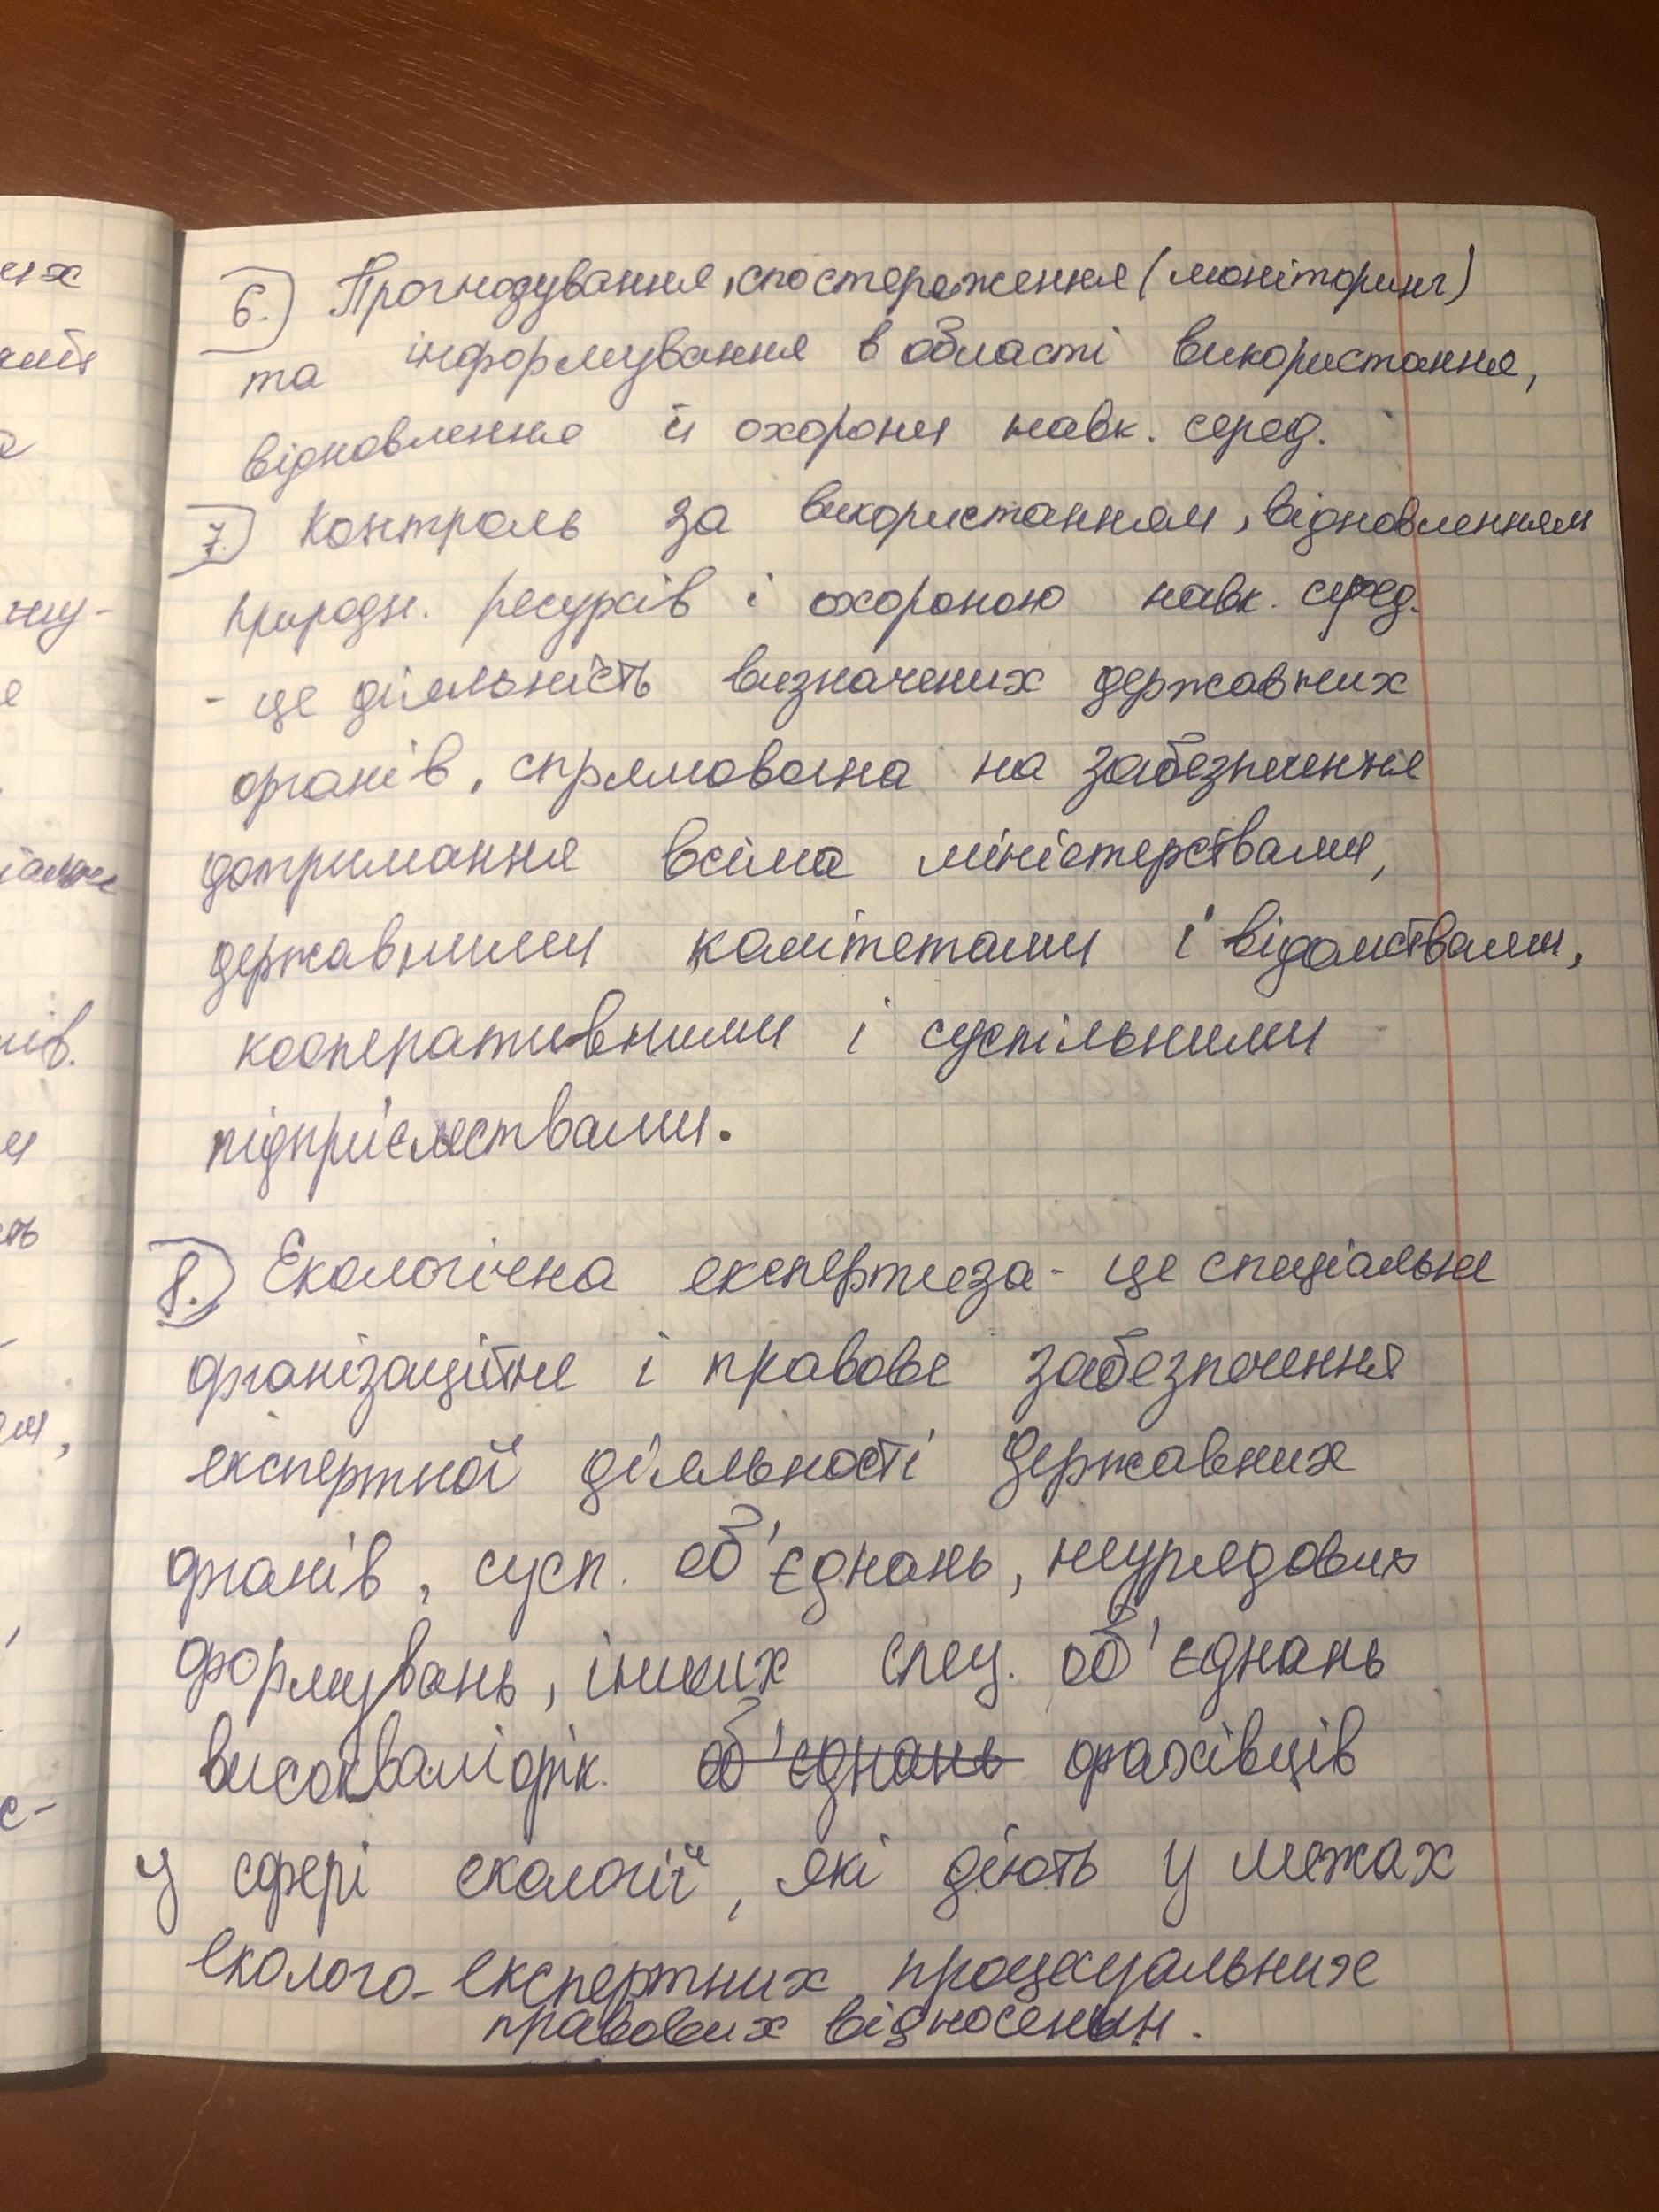 6.) Прогнозування, спостереження (моніторинг)
та інформування в області використання,
відновлення й охорони навк. серед.
7.) Контроль за використанням, відновленням
природн. ресурсів і охороною навк. серед.
- це діяльність визначених державних
органів, спрямована на забезпечення
дотримання всіма міністерствами,
державними комітетами і відомствами,
кооперативними і суспільними
підприємствами.
8.) Екологічна експертиза - це спеціальне
організаційне і правове забезпечення
експертної діяльності державних
органів, сусп. об'єднань, неурядових
формувань, інших спец. об'єднань
висококваліфік. об'єднань фахівців
у сфері екології, які діють у межах
еколого-експертних процесуальних
правових відносенин.